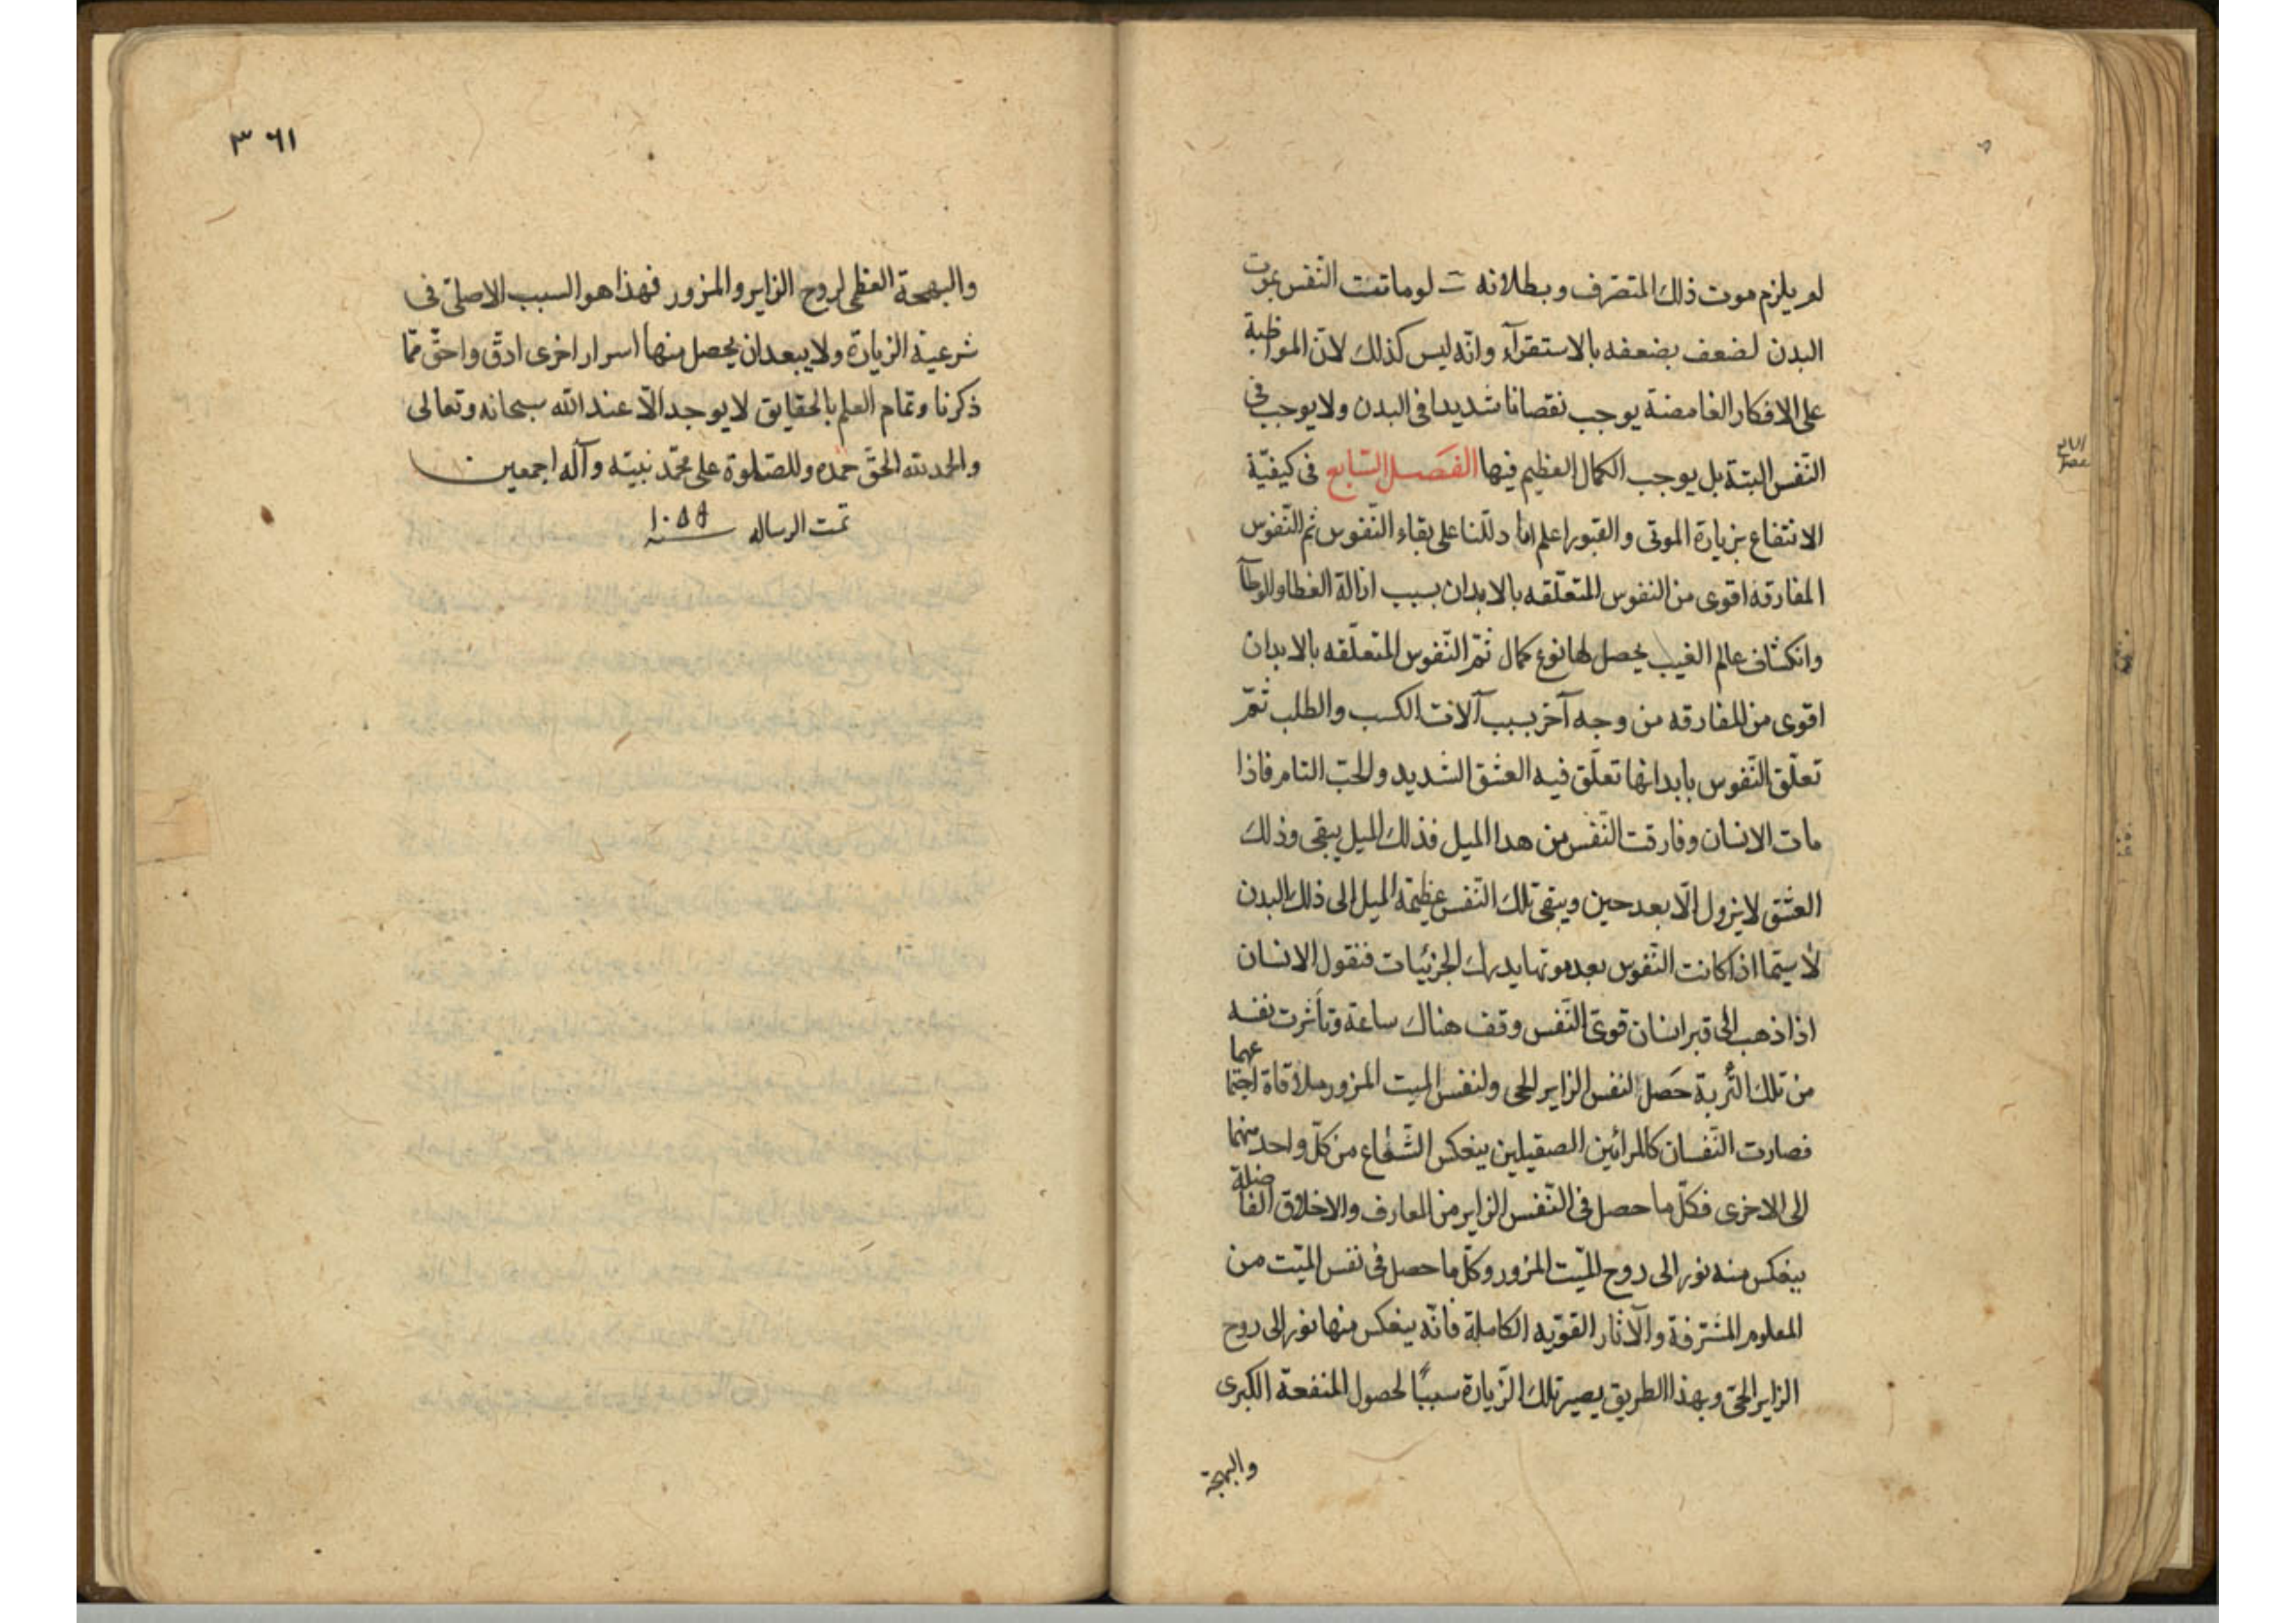 لم يلزم موت ذلك المتصرف وبطلانه لو ماتت النفس بموت
البدن لضعف بضعفه بالاستقرآء وانه ليس كذلك لان المواظبة
على الافكار الغامضة يوجب نقصانا شديدا فى البدن ولا يوجب فى
النفس البتة بل يوجب الكمال العظيم فيها الفصل السابع فى كيفية
الانتفاع بزيارة الموتى والقبور اعلم انا دللنا على بقاء النفوس ثم النفوس
المفارقه اقوى من النفوس المتعلقه بالابدان بسبب ازالة الغطا والوطآ
وانكشاف عالم الغيب يحصل لها نوع كمال ثم النفوس المتعلقه بالابدان
اقوى من المفارقه من وجه آخر بسبب آلات الكسب والطلب ثم
تعلق النفوس بابدانها تعلق فيه العشق الشديد والحب التام فاذا
مات الانسان وفارقت النفس من هدا الميل فذلك الميل يبقى وذلك
العشق لا يزول الا بعد حين ويبقى تلك النفس عظيمة الميل الى ذلك البدن
لا سيما اذا كانت النفوس بعد موتها يدرك الجزئيات فنقول الانسان
اذا ذهب الى قبر انسان قوى النفس وقف هناك ساعة وتأثرت نفسه
من تلك التربة حصل لنفس الزاير الحى ولنفس الميت المزور ملاقاة اجتماعهما
فصارت النفسان كالمرائين الصقيلين ينعكس الشعاع من كل واحد منهما
الى الاخرى فكل ما حصل فى النفس الزاير من المعارف والاخلاق الفاضلة
ينعكس منه نور الى روح الميت المزور وكل ما حصل فى نفس الميت من
المعلوم المشرفة والآثار القويه الكاملة فانه ينعكس منها نور الى روح
الزاير الحى وبهذا الطريق يصير تلك الزيارة سببا لحصول المنفعة الكبرى
والبهجة
٣٦١
والبهجة العظمى لروح الزاير والمزور فهذا هو السبب الاصلى فى
شرعية الزيارة ولا يبعد ان يحصل منها اسرار اخرى ادق واحق مما
ذكرنا وتمام العلم بالحقايق لا يوجد الا عند الله سبحانه وتعالى
والحمد لله الحق حمده والصلوة على محمد نبيه وآله اجمعين
تمت الرساله سنه